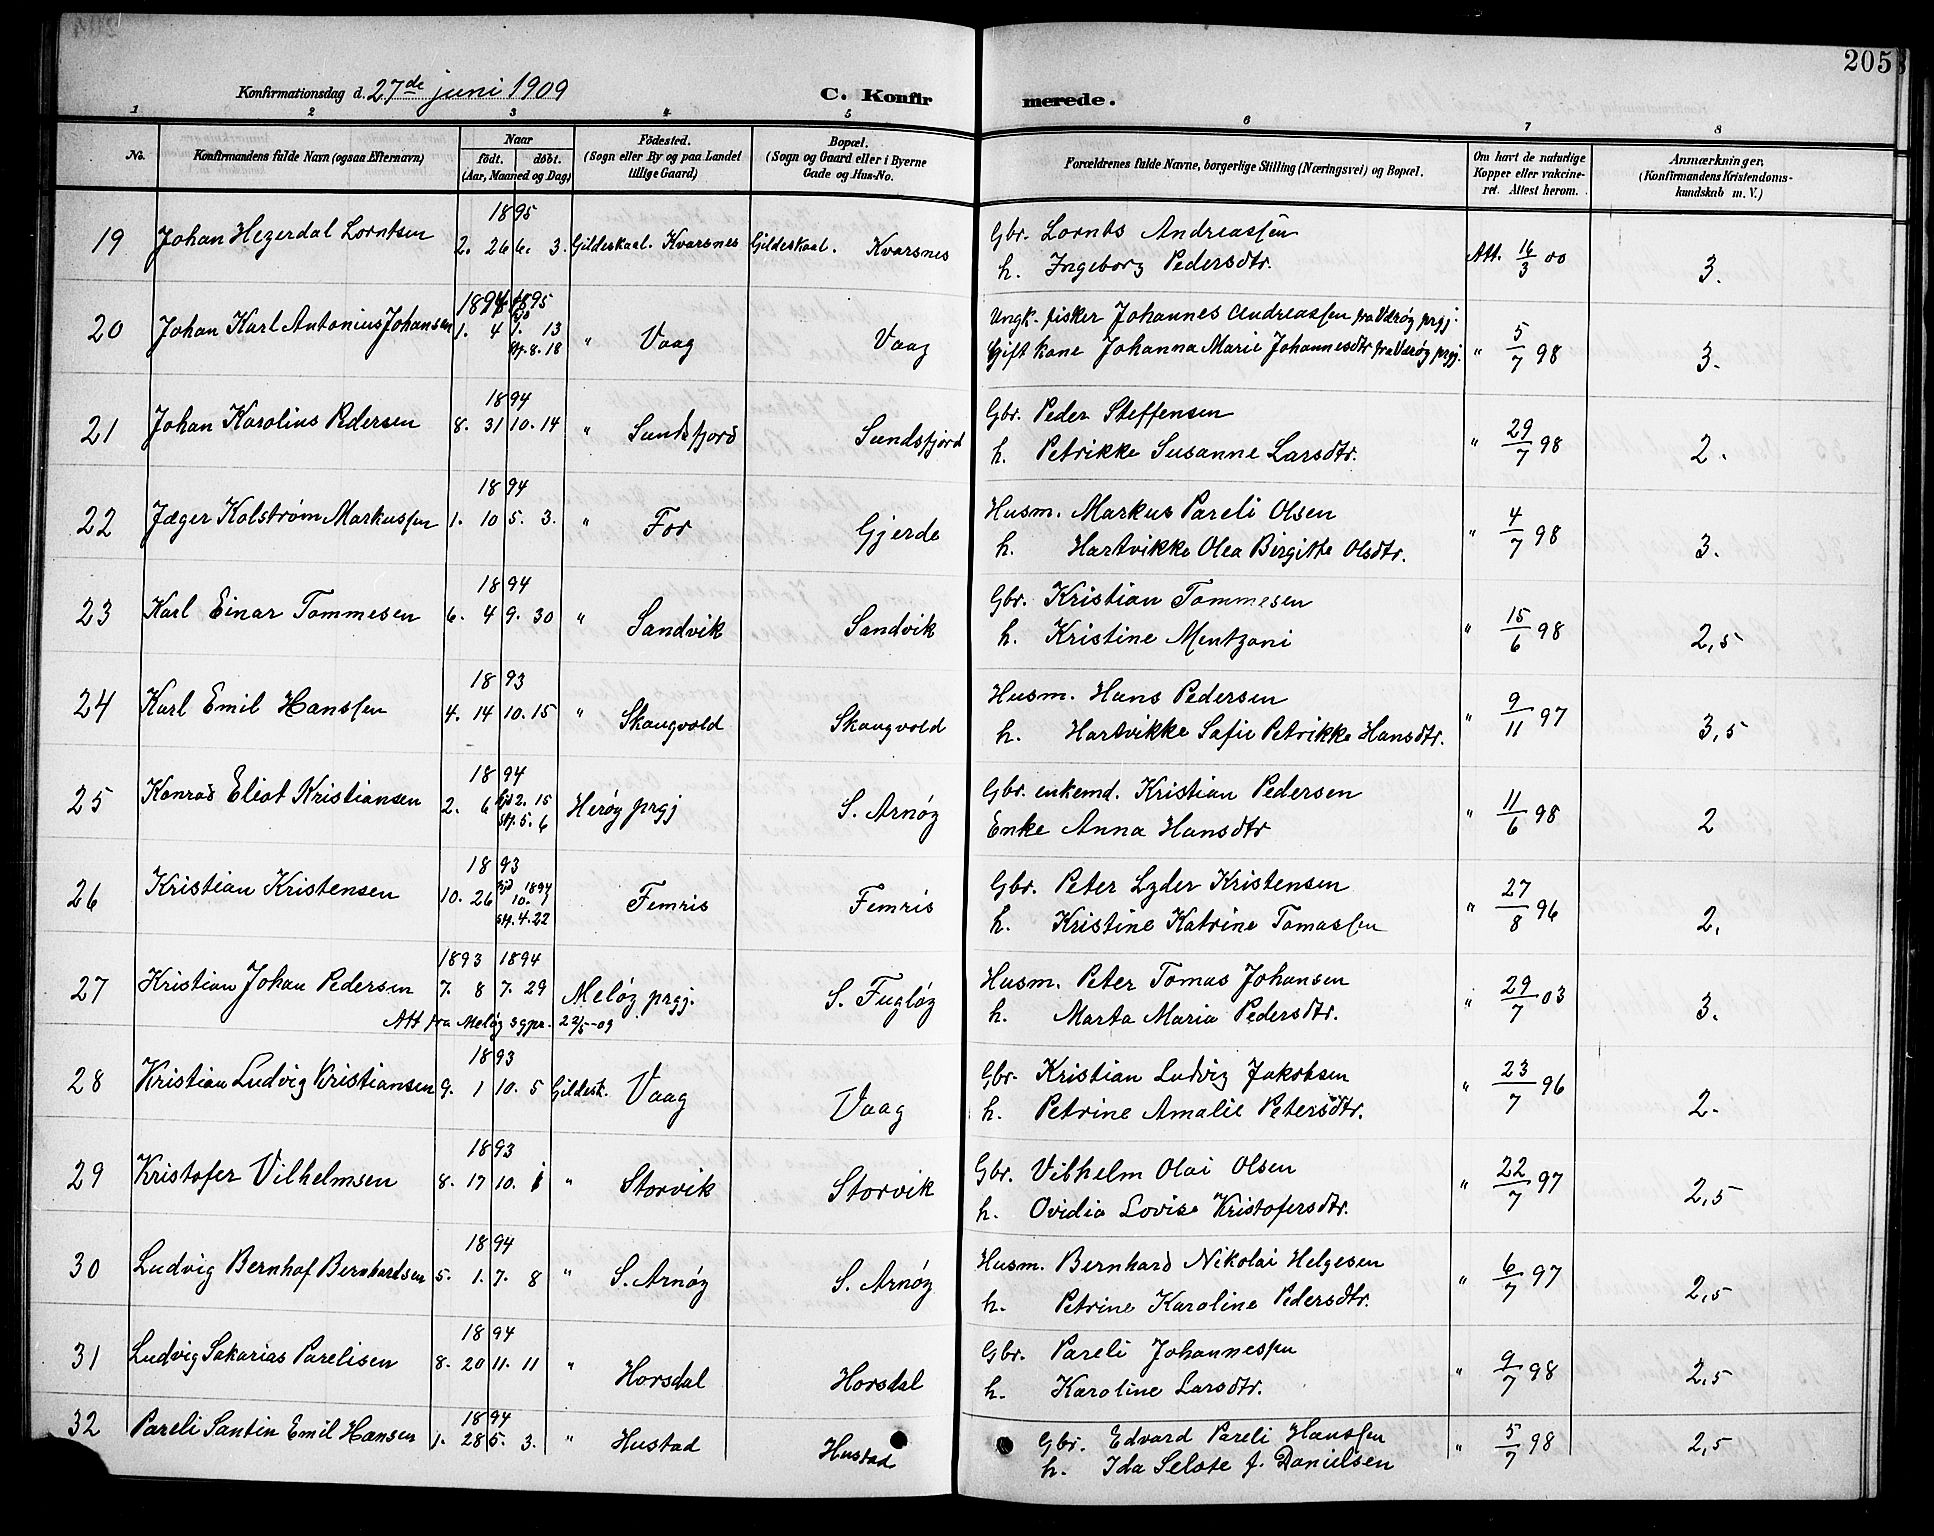 205
Konfirmationsdag d. 27de juni 1909
C. Konfir merede.
1 2 3 4 5 6 7 8
No.
Konfirmandens fulde Navn (ogsaa Efternavn)
Naar
født. døbt.
(Aar, Maaned og Dag)
Födested.
(Sogn eller By og paa Landet
tillige Gaard)
Bopæl.
(Sogn og Gaard eller i Byerne
Gade og Hus-No.
Forældrenes fulde Navne, borgerlige Stilling (Næringsvei) og Bopæl.
Om havt de naturlige
Kopper eller vakcine-
ret. Attest herom.
Anmærkninger,
(Konfirmandens Kristendoms-
kundskab m. V.)
1895
19 Johan Hegerdal Lorntsen 2. 26 6. 3. Gildeskaal. Kvarsnes Gildeskaal. Kvarsnes Gbr. Lornts Andreassen Att. 16/3 00 3.
h. Ingeborg Pedersdtr.
1894 1895
20 Johan Karl Antonius Johansen 1. 4 1. 13 " Vaag Vaag Ungk. fisker Johannes Andreassen fra Værøy prgj. " 5/7 98 3.
8. 18 Gift kone Johanna Marie Johannesdtr fra Værøy prgj.
1894
21 Johan Karolius Pedersen 8. 31 10. 14 " Sundsfjord Sundsfjord Gbr. Peder Steffensen " 29/7 98 2.
h. Petrikke Susanne Larsdtr.
1894
22 Jæger Kolstrøm Markussen 1. 10 5. 3. " For Gjerde Husm. Markus Pareli Olsen " 4/7 98 3.
h. Hartvikke Olea Birgitte Olsdtr.
1894
23 Karl Einar Tommesen 6. 4 9. 30 " Sandvik Sandvik Gbr. Kristian Tommesen " 15/6 98 2,5
h. Kristine Mentzoni
1893
24 Karl Emil Hanssen 4. 14 10. 15 " Skaugvold Skaugvold Husm. Hans Pedersen " 9/11 97 3,5
h. Hartvikke Sofie Petrikke Hansdtr.
1894
25 Konrad Eliot Kristiansen 2. 6 hjd 2. 15 Herøy prgj S. Arnøy Gbr. enkemd. Kristian Pedersen " 11/6 98 2
stf. 5. 6 Enke Anna Hansdtr
1893
26 Kristian Kristensen 10. 26 hjd 1894 Femris Femris Gbr. Peter Lyder Kristensen " 27/8 96 2.
stf. 4. 22 h. Kristine Katrine Tomassen
1893 1894
27 Kristian Johan Pedersen 7. 8 7. 29 Meløy prgj. S. Fugløy Husm. Peter Tomas Johansen " 29/7 03 3.
Att fra Meløy sgpr. 22/5-09 h. Marta Maria Pedersdtr.
1893
28 Kristian Ludvig Kristiansen 9. 1 10. 5 Gildesk. Vaag Vaag Gbr. Kristian Ludvig Jakobsen " 23/7 96 2.
h. Petrine Amalie Petersdtr.
1893
29 Kristofer Vilhelmsen 8. 17 10. 1 " Storvik Storvik Gbr. Vilhelm Olai Olsen " 22/7 97 2,5
h. Ovidia Lovise Kristofersdtr.
1894
30 Ludvig Bernhof Bernhardsen 5. 1. 7. 8 " S. Arnøy S. Arnøy Husm. Bernhard Nikolai Helgesen " 6/7 97 2,5
h. Petrine Karoline Pedersdtr.
1894
31 Ludvig Sakarias Parelisen 8. 20 11. 11 " Horsdal Horsdal Gbr. Pareli Johannessen " 9/7 98 2,5
h. Karoline Larsdtr.
1894
32 Pareli Santin Emil Hansen 1. 28 5. 3. " Hustad Hustad Gbr. Edvard Pareli Hanssen " 5/7 98 2,5
h. Ida Selote f. Danielsen